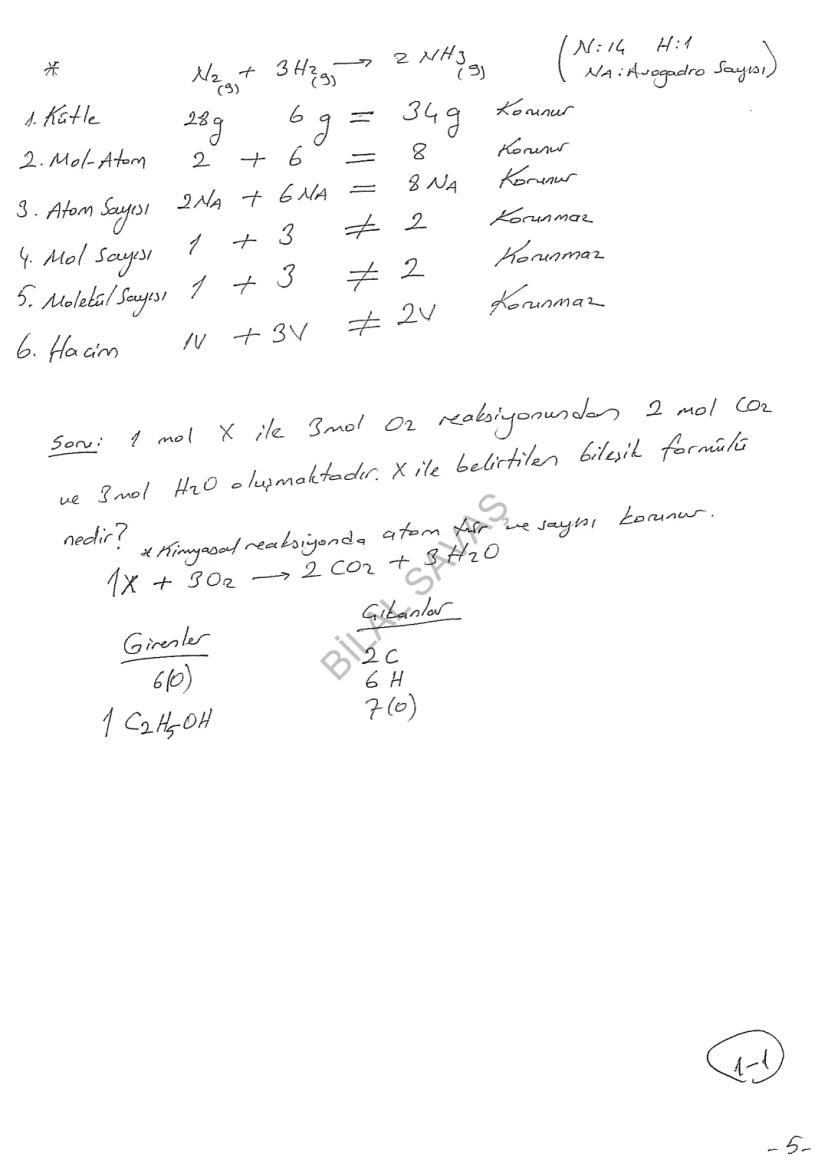 * N2(g) + 3H2(g) → 2 NH3(g) (N:14 H:1
NA: Avogadro Sayısı)
1. Kütle 28g 6g = 34g Korunur
2. Mol-Atom 2 + 6 = 8 Korunur
3. Atom Sayısı 2NA + 6NA = 8NA Korunur
4. Mol Sayısı 1 + 3 ≠ 2 Korunmaz
5. Molekül Sayısı 1 + 3 ≠ 2 Korunmaz
6. Hacim 1V + 3V ≠ 2V Korunmaz
Soru: 1 mol X ile 3mol O2 reaksiyonundan 2 mol CO2
ve 3mol H2O oluşmaktadır. X ile belirtilen bileşik formülü
nedir? * Kimyasal reaksiyonda atom tür ve sayısı korunur.
1X + 3O2 → 2CO2 + 3H2O
Girenler Çıkanlar
6(O) 2C
6H
1 C2H5OH 7(O)
BİLAL SAVAŞ
1-1
-5-